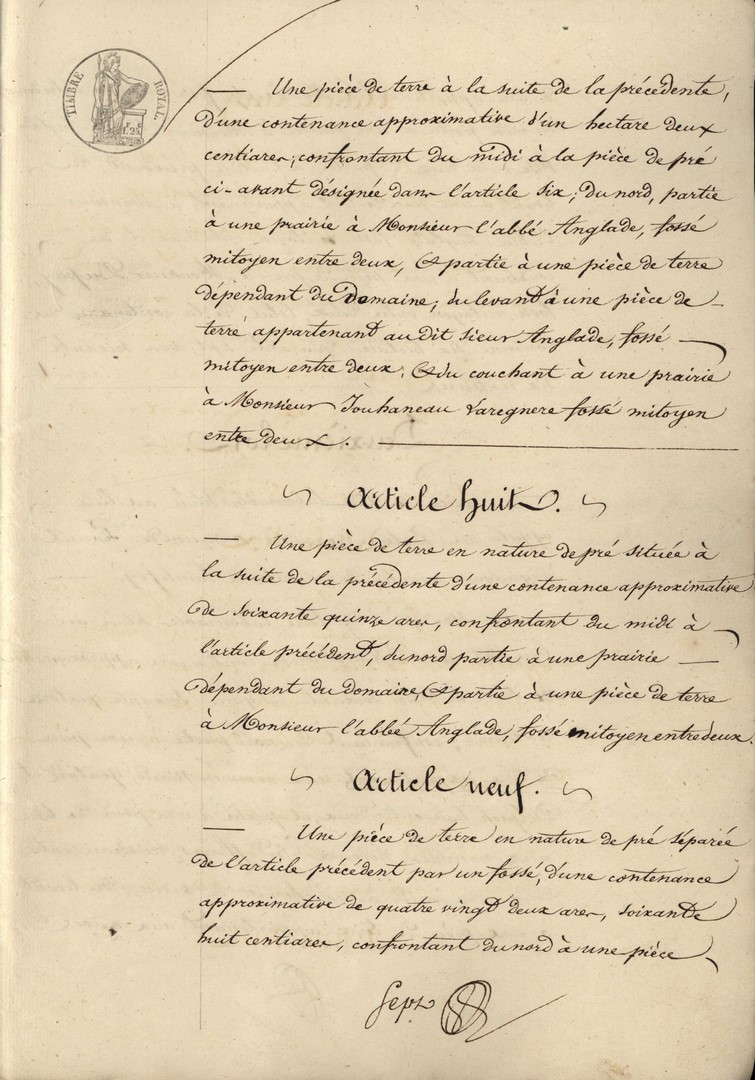 TIMBRE ROYAL.
1.25
— Une pièce de terre à la suite de la précédente,
d'une contenance approximative d'un hectare deux
centiares, confrontant du midi à la pièce de pré
ci-avant désignée dans l'article six; du nord, partie
à une prairie à Monsieur l'abbé Anglade, fossé
mitoyen entre deux, & partie à une pièce de terre
dépendant du Domaine; du levant à une pièce de
terre appartenant au dit sieur Anglade, fossé —
mitoyen entre deux; & du couchant à une prairie
à Monsieur Jouhaneau Laregnere fossé mitoyen
entre deux. —
Article huit.
— Une pièce de terre en nature de pré située à
la suite de la précédente d'une contenance approximative
de soixante quinze ares, confrontant du midi à —
l'article précédent, du nord partie à une prairie —
dépendant du domaine, & partie à une pièce de terre
à Monsieur l'abbé Anglade, fossé mitoyen entre deux.
Article neuf.
— Une pièce de terre en nature de pré séparée
de l'article précédent par un fossé, d'une contenance
approximative de quatre vingt deux ares, soixante
huit centiares, confrontant du nord à une pièce
Sept